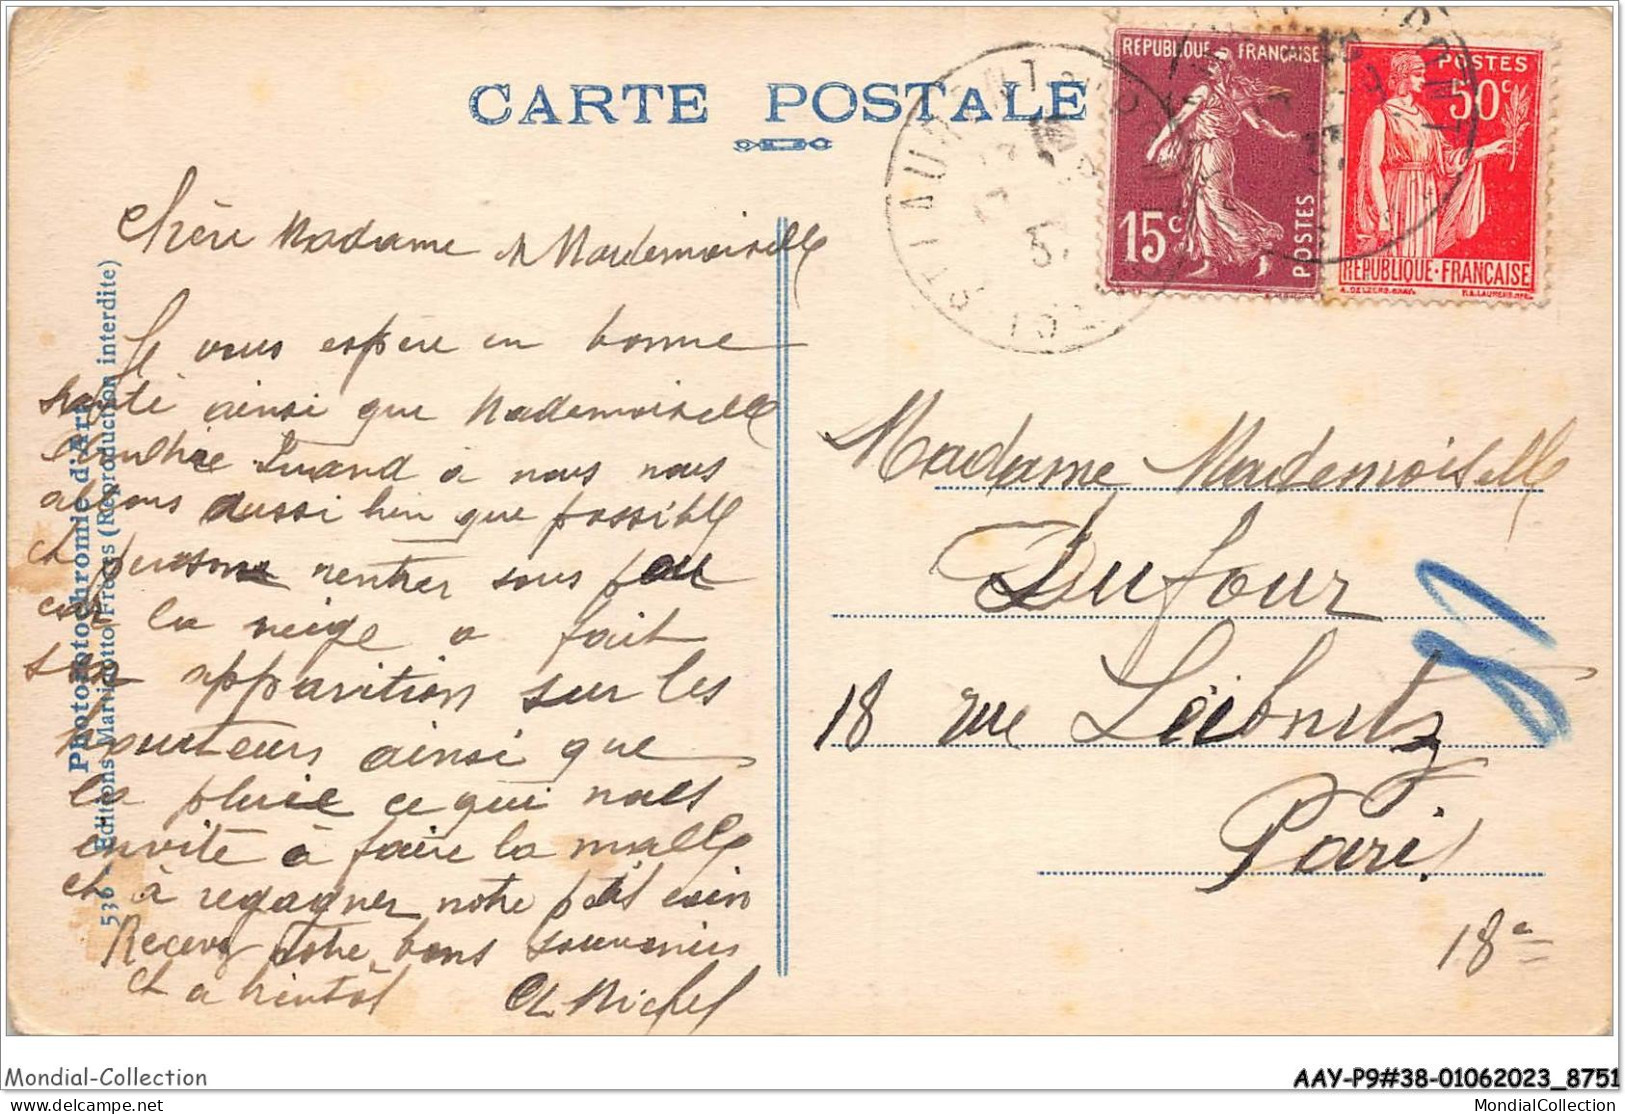 CARTE POSTALE
RÉPUBLIQUE FRANÇAISE
15c
POSTES
POSTES
50c
RÉPUBLIQUE·FRANÇAISE
Chère Madame et Mademoiselle
Je vous espère en bonne
santé ainsi que Mademoiselle
Quand à nous nous
allons aussi bien que possible
et rentrer sous peu
car la neige a fait
son apparition sur les
hauteurs ainsi que
la pluie ce qui nous
invite à faire la malle
et à regagner notre petit coin
Recevez notre bons souvenirs
et a bientôt Michel
Madame Mademoiselle
Dufour
18 rue Leibnitz
Paris
18e
Photochromie d'Art
536 - Editions Mariotto Frères (Reproduction interdite)
Mondial-Collection
AAY-P9#38-01062023_8751
MondialCollection